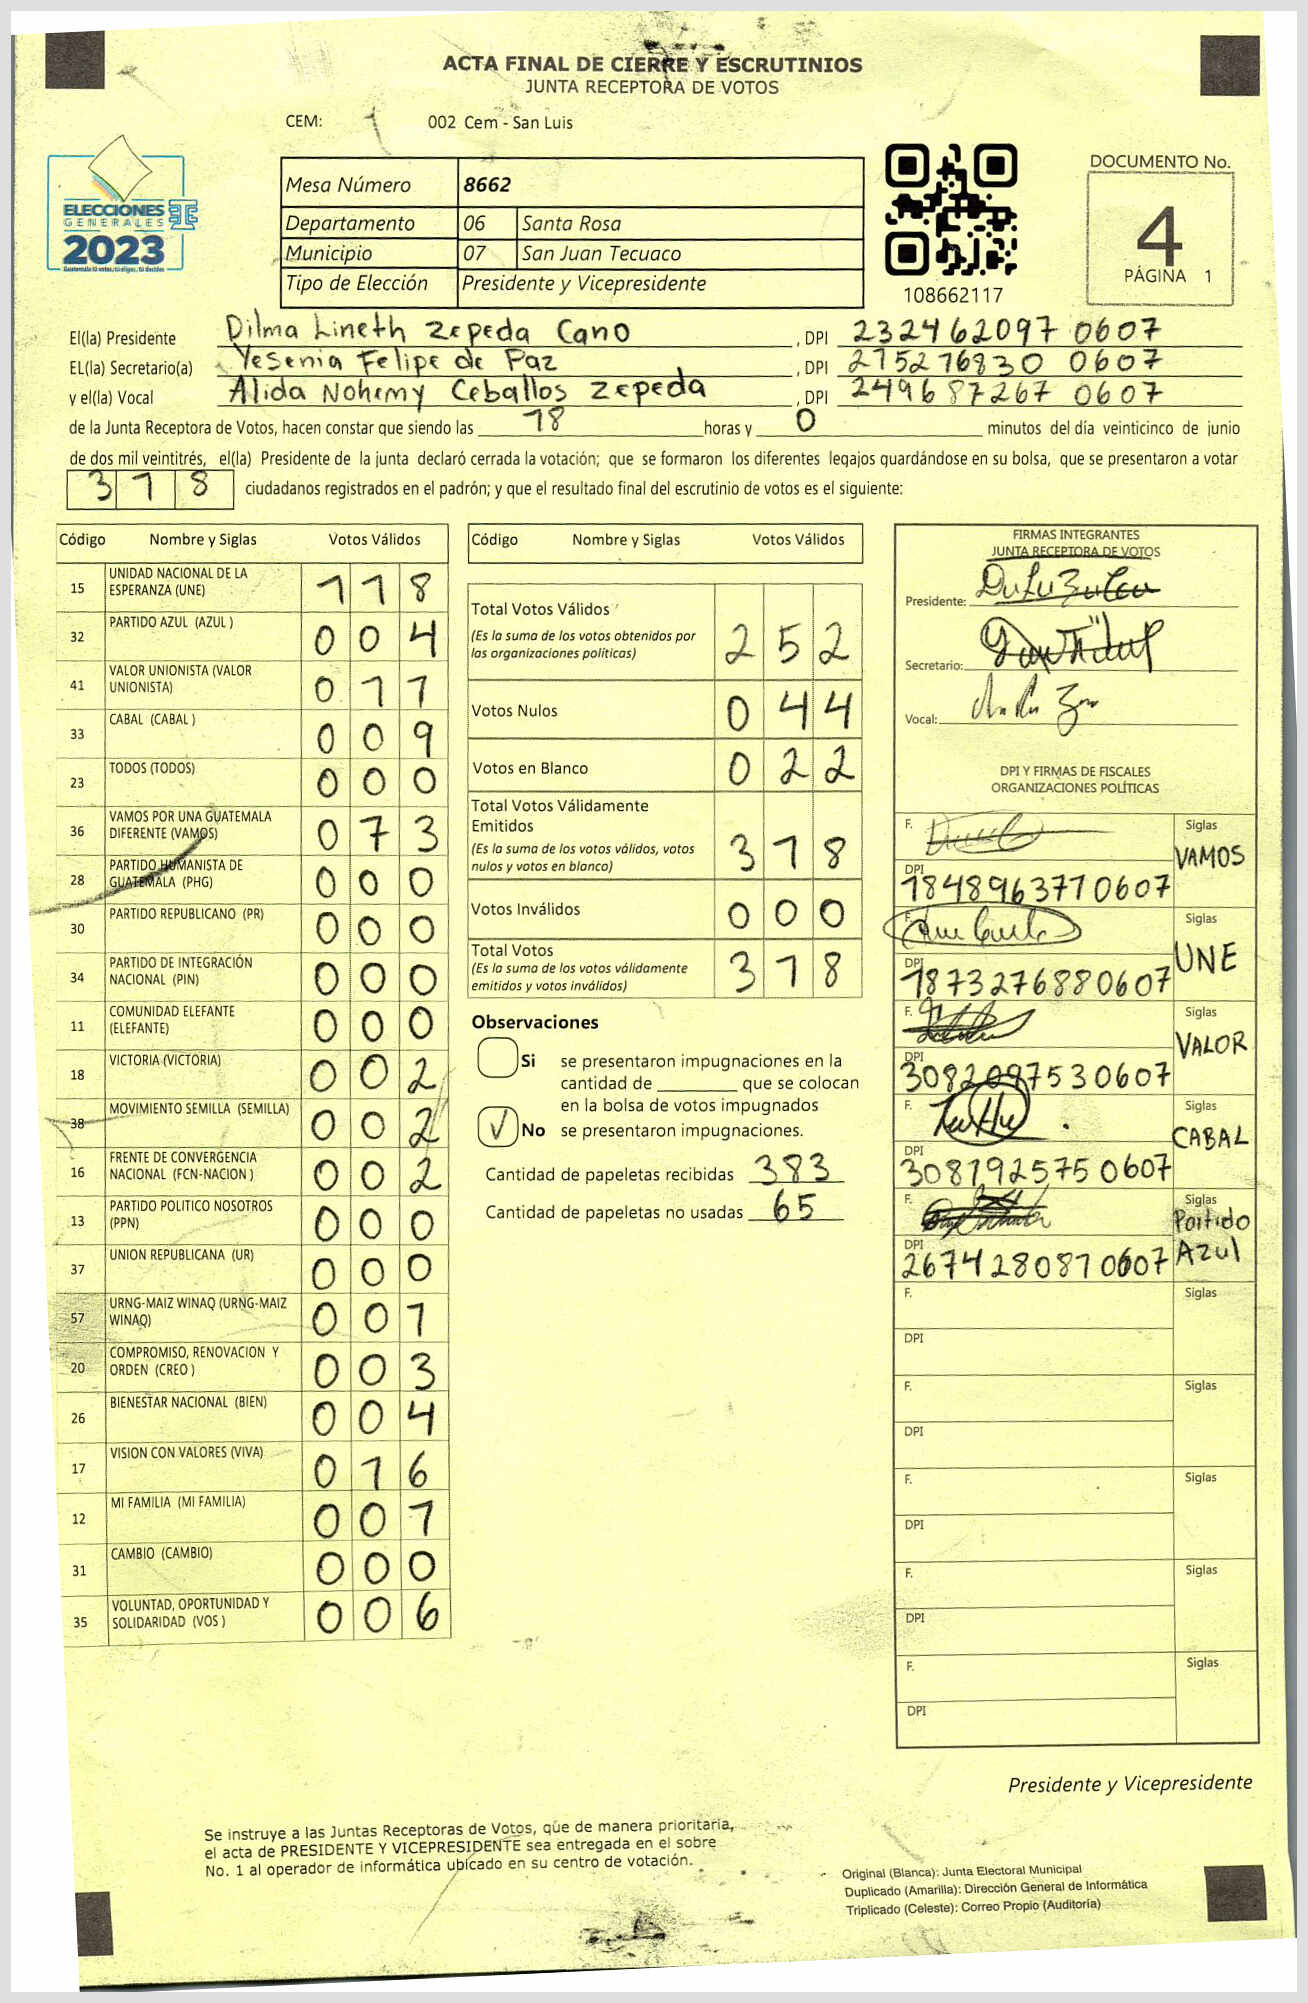 ACTA FINAL DE CIERRE Y ESCRUTINIOS
JUNTA RECEPTORA DE VOTOS
CEM: 002 Cem - San Luis
ELECCIONES
GENERALES
2023
Mesa Número 8662
Departamento 06 Santa Rosa
Municipio 07 San Juan Tecuaco
Tipo de Elección Presidente y Vicepresidente
108662117
DOCUMENTO No.
4
PÁGINA 1
El(la) Presidente Dilma Lineth Zepeda Cano, DPI 232462097 0607
EL(la) Secretario(a) Yesenia Felipe de Paz, DPI 215276830 0607
y el(la) Vocal Alida Nohemy Ceballos Zepeda, DPI 249687267 0607
de la Junta Receptora de Votos, hacen constar que siendo las 18 horas y 0 minutos del día veinticinco de junio
de dos mil veintitrés, el(la) Presidente de la junta declaró cerrada la votación; que se formaron los diferentes legajos guardándose en su bolsa, que se presentaron a votar
318 ciudadanos registrados en el padrón; y que el resultado final del escrutinio de votos es el siguiente:
Código Nombre y Siglas Votos Válidos
15 UNIDAD NACIONAL DE LA ESPERANZA (UNE) 118
32 PARTIDO AZUL (AZUL ) 004
41 VALOR UNIONISTA (VALOR UNIONISTA) 011
33 CABAL (CABAL ) 009
23 TODOS (TODOS) 000
36 VAMOS POR UNA GUATEMALA DIFERENTE (VAMOS) 073
28 PARTIDO HUMANISTA DE GUATEMALA (PHG) 000
30 PARTIDO REPUBLICANO (PR) 000
34 PARTIDO DE INTEGRACIÓN NACIONAL (PIN) 000
11 COMUNIDAD ELEFANTE (ELEFANTE) 000
18 VICTORIA (VICTORIA) 002
38 MOVIMIENTO SEMILLA (SEMILLA) 002
16 FRENTE DE CONVERGENCIA NACIONAL (FCN-NACION ) 002
13 PARTIDO POLITICO NOSOTROS (PPN) 000
37 UNION REPUBLICANA (UR) 000
57 URNG-MAIZ WINAQ (URNG-MAIZ WINAQ) 001
20 COMPROMISO, RENOVACION Y ORDEN (CREO ) 003
26 BIENESTAR NACIONAL (BIEN) 004
17 VISION CON VALORES (VIVA) 016
12 MI FAMILIA (MI FAMILIA) 001
31 CAMBIO (CAMBIO) 000
35 VOLUNTAD, OPORTUNIDAD Y SOLIDARIDAD (VOS ) 006
Código Nombre y Siglas Votos Válidos
Total Votos Válidos 252
(Es la suma de los votos obtenidos por
las organizaciones políticas)
Votos Nulos 044
Votos en Blanco 022
Total Votos Válidamente
Emitidos 318
(Es la suma de los votos válidos, votos
nulos y votos en blanco)
Votos Inválidos 000
Total Votos 318
(Es la suma de los votos válidamente
emitidos y votos inválidos)
Observaciones
Si se presentaron impugnaciones en la
cantidad de ________ que se colocan
en la bolsa de votos impugnados
✓ No se presentaron impugnaciones.
Cantidad de papeletas recibidas 383
Cantidad de papeletas no usadas 65
FIRMAS INTEGRANTES
JUNTA RECEPTORA DE VOTOS
Presidente:
Secretario:
Vocal:
DPI Y FIRMAS DE FISCALES
ORGANIZACIONES POLÍTICAS
F. Siglas VAMOS
DPI 1848963770607
F. Siglas UNE
DPI 1873276880607
F. Siglas VALOR
DPI 3082097530607
F. Siglas CABAL
DPI 308192575 0607
F. Siglas Partido Azul
DPI 2674280810607
F. Siglas
DPI
F. Siglas
DPI
F. Siglas
DPI
F. Siglas
DPI
F. Siglas
DPI
Presidente y Vicepresidente
Se instruye a las Juntas Receptoras de Votos, que de manera prioritaria,
el acta de PRESIDENTE Y VICEPRESIDENTE sea entregada en el sobre
No. 1 al operador de informática ubicado en su centro de votación.
Original (Blanca): Junta Electoral Municipal
Duplicado (Amarilla): Dirección General de Informática
Triplicado (Celeste): Correo Propio (Auditoría)